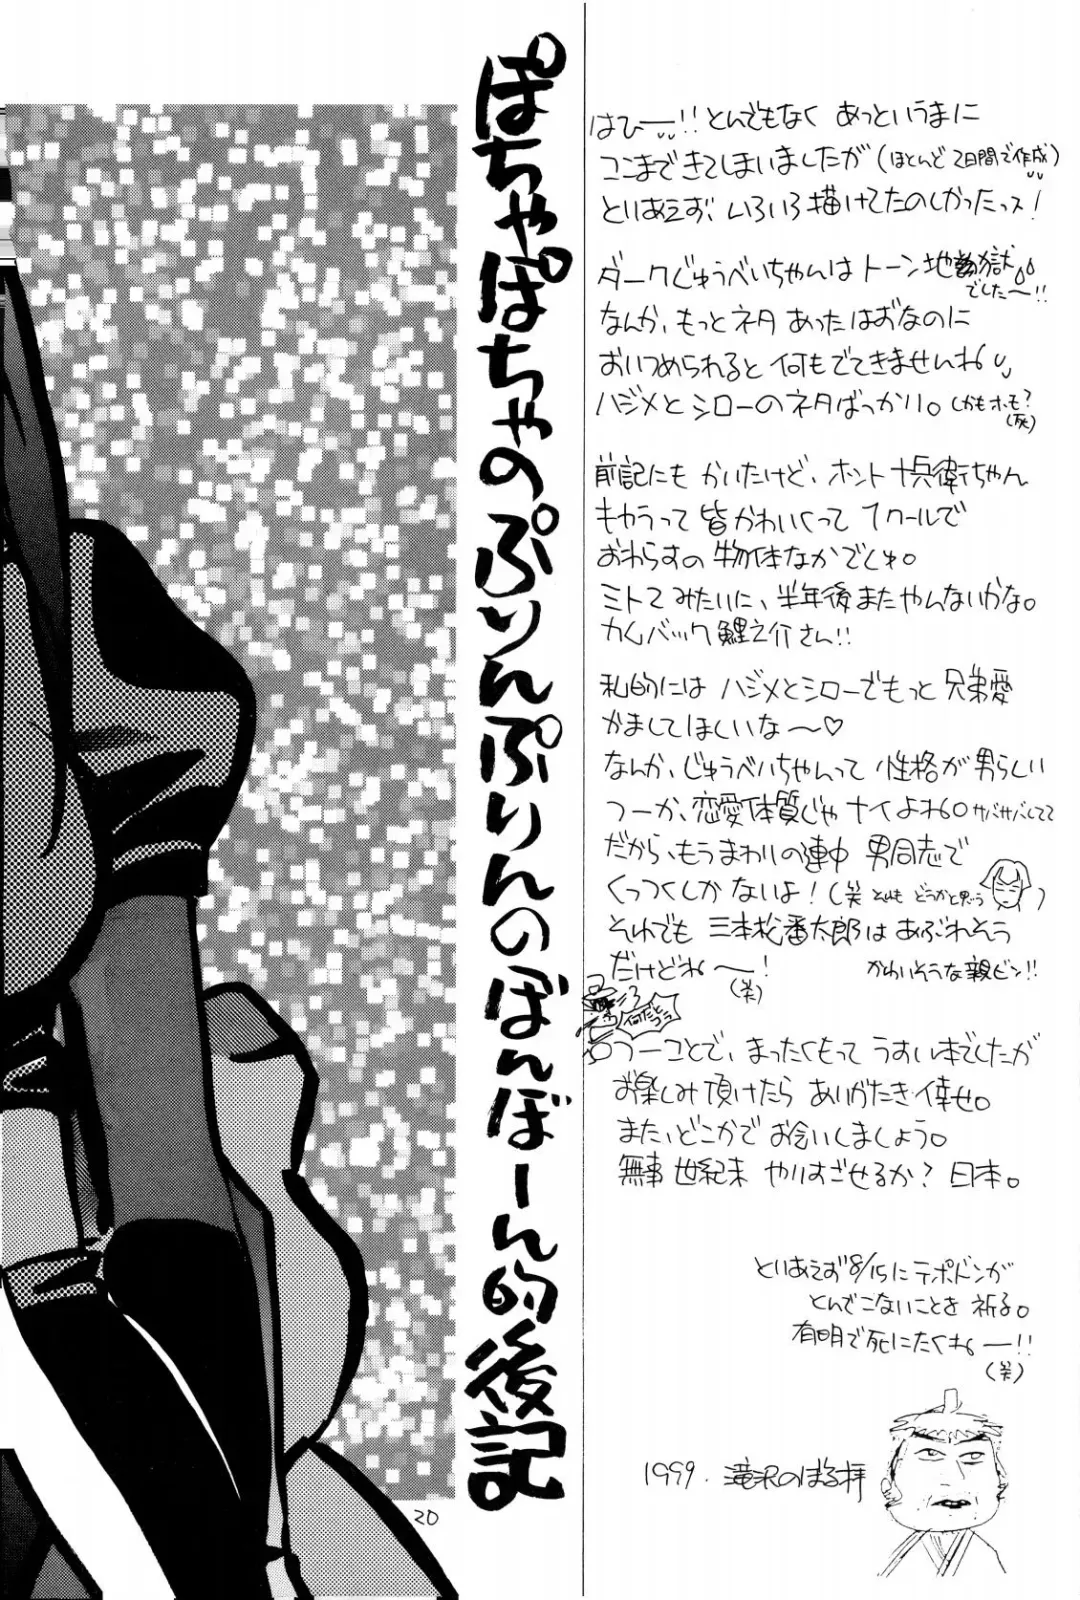 ぽちゃぽちゃのぷりんぷりんのぼんぼーん的後記
はひー!!とんでもなく あっというまに
ここまできてしまいましたが(ほとんど2日間で作成)
とりあえず、いろいろ描けてたのしかったっス!
ダークじゅうべいちゃんはトーン地獄
でした〜!!
なんか、もっとネタあったはずなのに
おいつめられると何もでてきませんね
ハジメとシローのネタばっかり。(しかもホモ?
(死)
前記にもかいたけど、ホント十兵衛ちゃん
キャラって皆かわいくって1クールで
おわらすの勿体なかでしゅ。
ミトてみたいに、半年後またやんないかな。
カムバック鯉之介さん!!
私的にはハジメとシローでもっと兄弟愛
かましてほしいな〜♡
なんか、じゅうべいちゃんって性格が男らしい
つーか、恋愛体質じゃナイよね。サバサバしてて
だから、もうまわりの連中男同志で
くっつくしかないよ!(笑 それも どうかと思う)
それでも三本松番太郎はあぶれそう
だけどね〜!
(笑)
かわいそうな親ビン!!
何だとう
つーコトで、まったくもってうすい本でしたが
お楽しみ頂けたらありがたき倖せ。
また、どこかでお会いしましょう。
無事世紀末やりすごせるか?日本。
とりあえず8/15にテポドンが
とんでこないことを祈る。
有明で死にたくねー!!
(笑)
1999. 滝沢のぼる拝
20